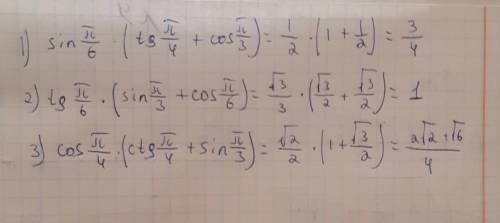 1) sin π/6 · (tg π/4 + cos π/3) = 1/2 · (1 + 1/2) = 3/4
2) tg π/6 · (sin π/3 + cos π/6) = √3/3 · (√3/2 + √3/2) = 1
3) cos π/4 · (ctg π/4 + sin π/3) = √2/2 · (1 + √3/2) = 2√2 + √6/4